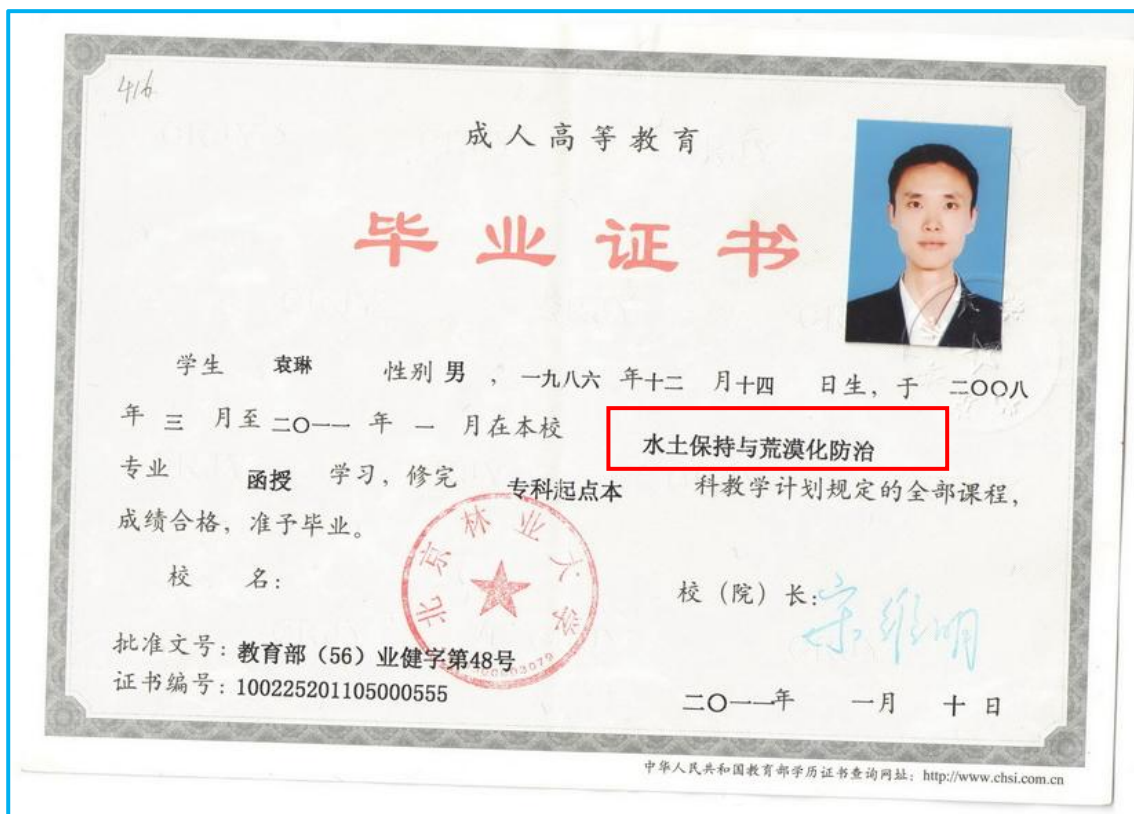 416
成人高等教育
毕业证书
学生 袁琳 性别 男 , 一九八六 年十二 月十四 日生, 于 二〇〇八
年 三 月至 二〇一一 年 一 月在本校 水土保持与荒漠化防治
专业 函授 学习, 修完 专科起点本 科教学计划规定的全部课程,
成绩合格, 准予毕业。
北京林业大学
校 名:
校（院）长: 宋维明
批准文号: 教育部（56）业健字第48号
证书编号: 100225201105000555
二〇一一年 一月 十日
中华人民共和国教育部学历证书查询网址: http://www.chsi.com.cn